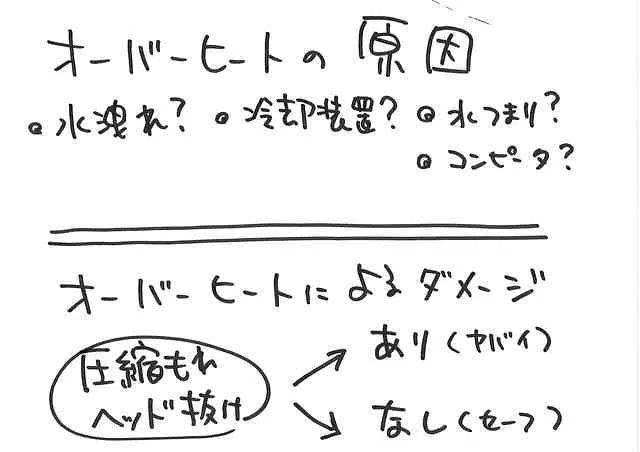 オーバーヒートの原因
・水洩れ? ・冷却装置? ・水つまり?
・コンピータ?
オーバーヒートによるダメージ
圧縮もれ
ヘッド抜け
あり(ヤバイ)
なし(セーフ)